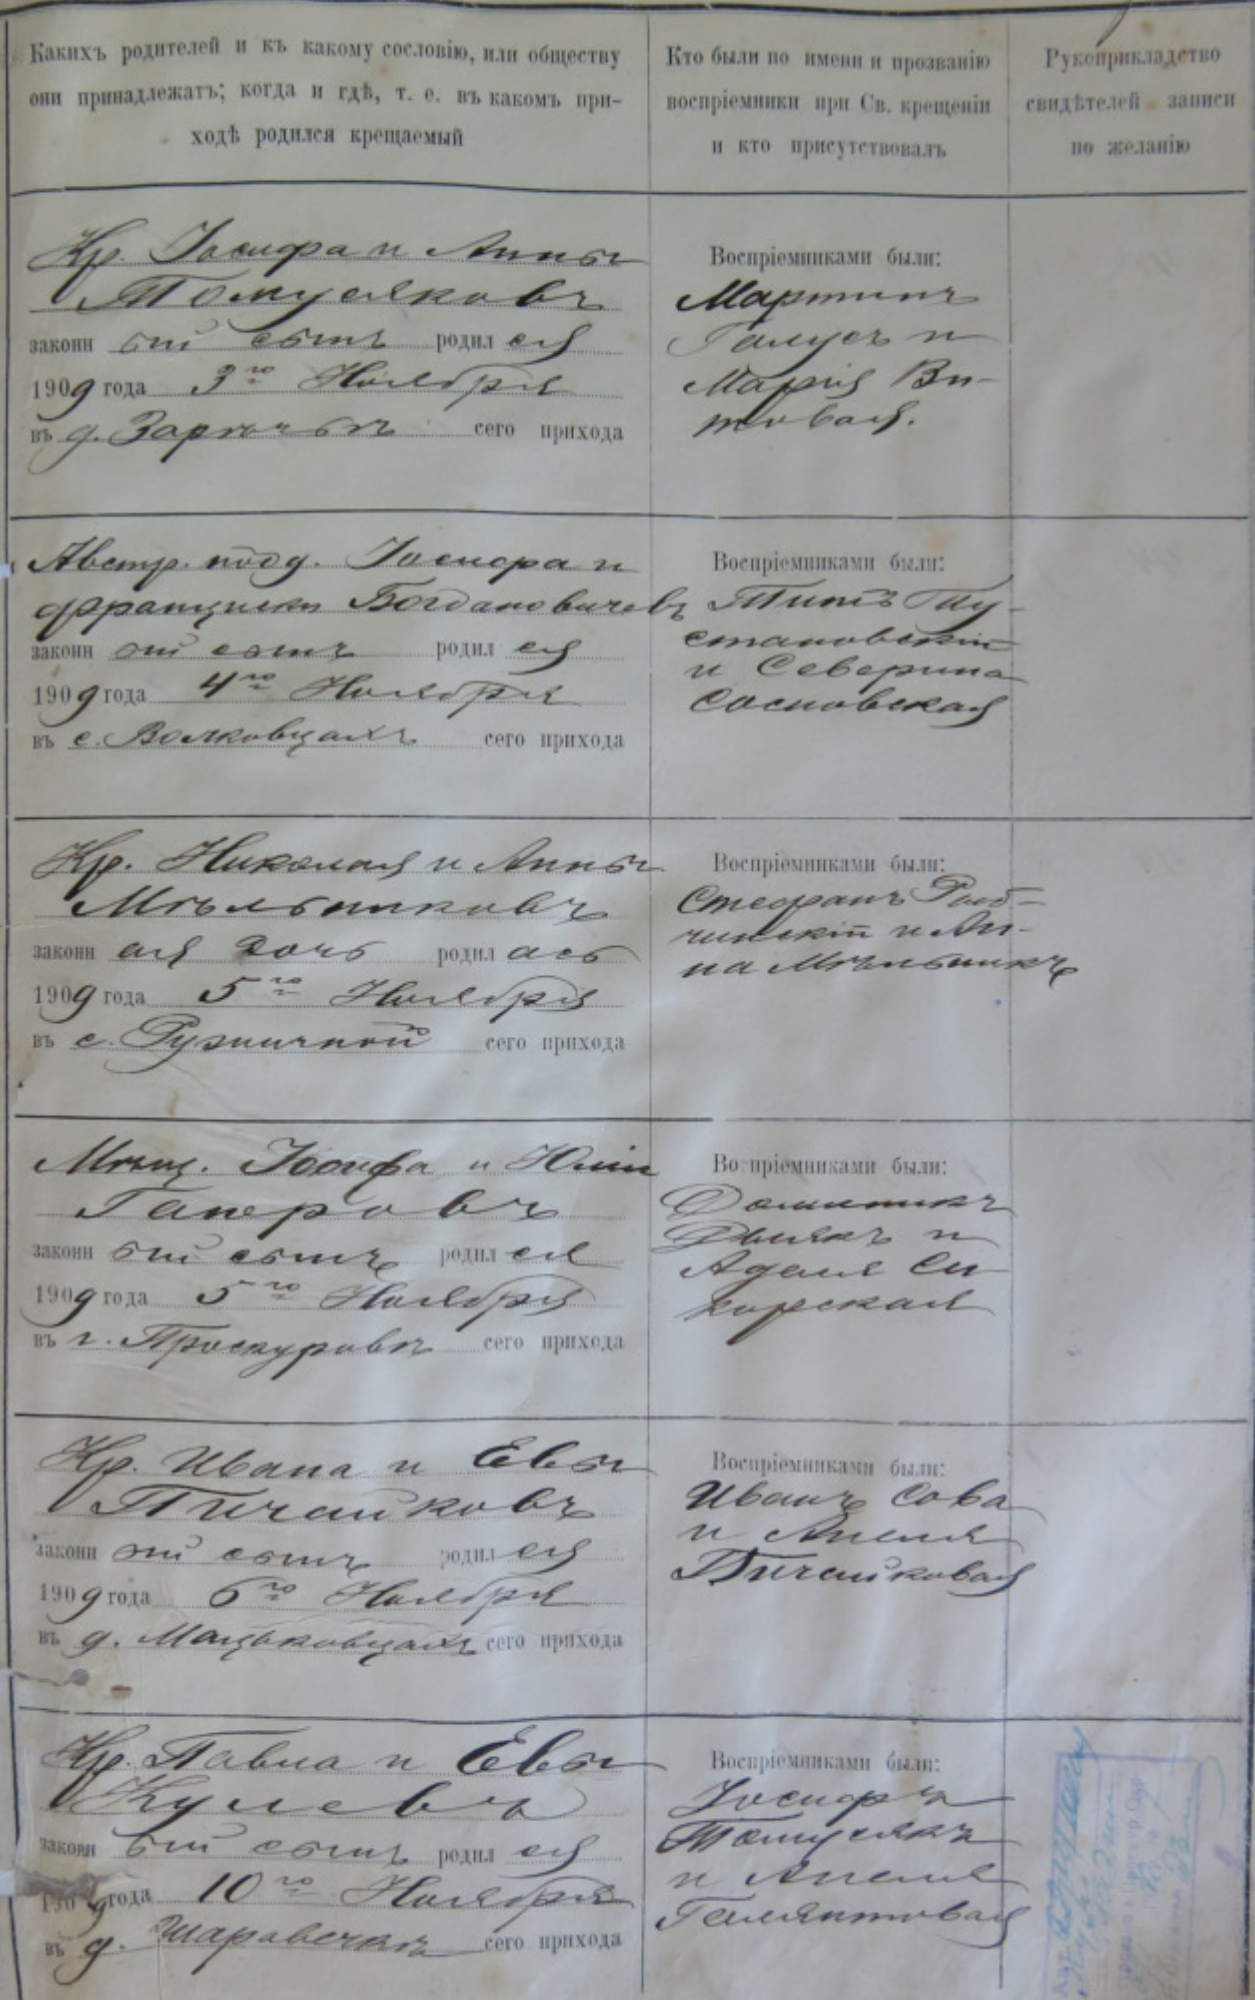 Какихъ родителей и къ какому сословію, или обществу
они принадлежатъ; когда и гдѣ, т. е. въ какомъ при-
ходѣ родился крещаемый
Кто были по имени и прозванію
воспріемники при Св. крещеніи
и кто присутствовалъ
Рукоприкладство
свидѣтелей записи
по желанію
Кр. Іосифа и Анны
Томусяковъ
законн ый сынъ родил ся
1909 года 3го Ноября
въ д. Зарѣчьѣ сего прихода
Воспріемниками были:
Мартинъ
Галусъ и
Марія Ви-
товая.
Австр. под. Іосифа и
Франциски Богдановичевъ
законн ый сынъ родил ся
1909 года 4го Ноября
въ с. Волковцахъ сего прихода
Воспріемниками были:
Титъ
становскій
и Северина
Сосновская
Кр. Николая и Анны
Мѣльниковъ
законн ая дочь родил ась
1909 года 5го Ноября
въ с. Ружичной сего прихода
Воспріемниками были:
Стефанъ
и Ан-
на Мѣльникъ
Мѣщ. Іосифа и Юліи
Гаперовъ
законн ый сынъ родил ся
1909 года 5го Ноября
въ г. Проскуровѣ сего прихода
Воспріемниками были:
Доминикъ
и
Аделя Си
корская
Кр. Ивана и Евы
Пичайковъ
законн ый сынъ родил ся
1909 года 6го Ноября
въ д. Мацьковцахъ сего прихода
Воспріемниками были:
Иванъ Сова
и Анеля
Пичайковая
Кр. Павла и Евы
Кулевъ
законн ый сынъ родил ся
1909 года 10го Ноября
въ д. Шаравечкѣ сего прихода
Воспріемниками были:
Іосифъ
Томусякъ
и Анеля
Галянтовая